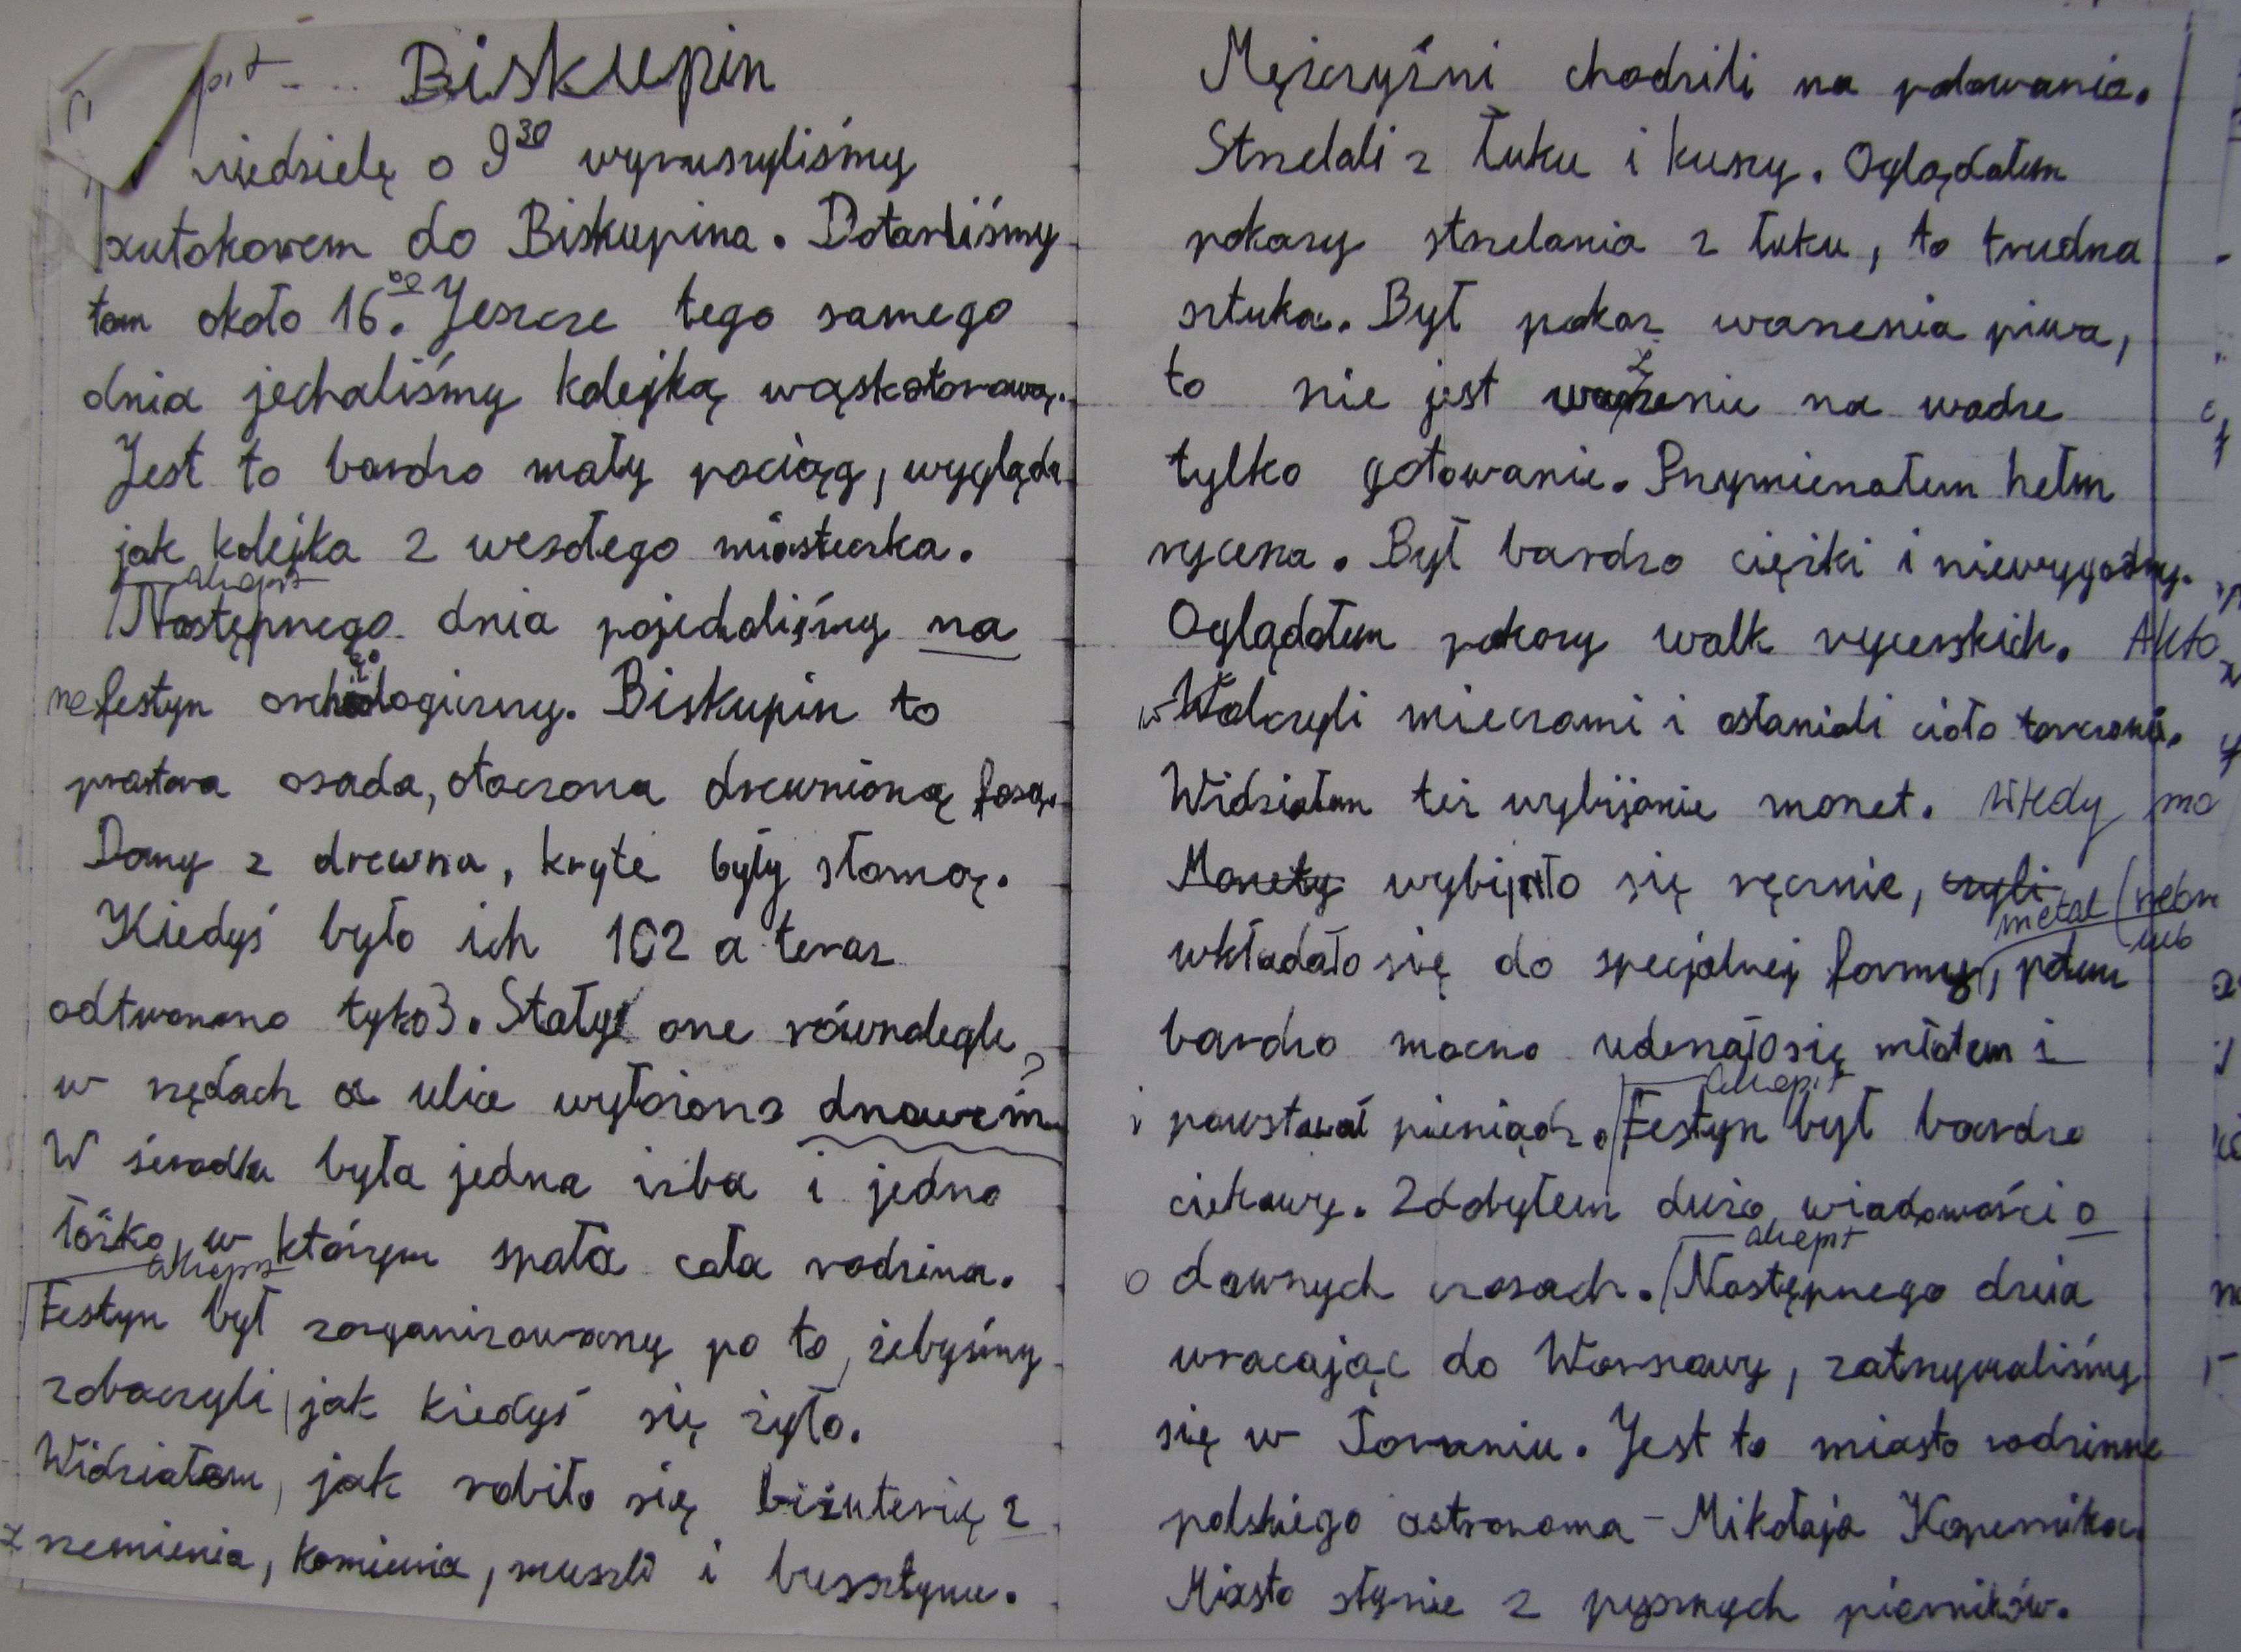 Biskupin
niedzielę o 9³⁰ wyruszyliśmy
autokarem do Biskupina. Dotarliśmy
tam około 16⁰⁰. Jeszcze tego samego
dnia jechaliśmy kolejką wąskotorową.
Jest to bardzo mały pociąg, wygląda
jak kolejka z wesołego miasteczka.
akapit
Następnego dnia pojechaliśmy na
na festyn archeologiczny. Biskupin to
prastara osada, otoczona drewnianą fosą.
Domy z drewna, kryte były słomą.
Kiedyś było ich 102 a teraz
odtworzono tylko 3. Stały one równolegle
w rzędach a ulice wyłożono
W środku była jedna izba i jedno
łóżko, w którym spała cała rodzina.
akapit
Festyn był zorganizowany po to, żebyśmy
zobaczyli, jak kiedyś się żyło.
Widziałem, jak robiło się biżuterię z
z rzemienia, kamienia, muszli i bursztynu.
Mężczyźni chodzili na polowania.
Strzelali z łuku i kuszy. Oglądałem
pokazy strzelania z łuku, to trudna
sztuka. Był pokaz warzenia piwa,
to nie jest ważenie na wadze
tylko gotowanie. Przymierzałem hełm
rycerza. Był bardzo ciężki i niewygodny.
Oglądałem pokazy walk rycerskich. Akto
Walczyli mieczami i osłaniali ciało tarczami.
Widziałem też wybijanie monet. Wtedy mo
Monety wybijało się ręcznie, czyli
metal
wkładało się do specjalnej formy, potem
bardzo mocno uderzało się młotem i
akapit
i powstawał pieniądz. Festyn był bardzo
ciekawy. Zdobyłem dużo wiadomości o
akapit
o dawnych czasach. Następnego dnia
wracając do Warszawy, zatrzymaliśmy
się w Toruniu. Jest to miasto rodzinne
polskiego astronoma - Mikołaja Kopernika.
Miasto słynie z pysznych pierników.